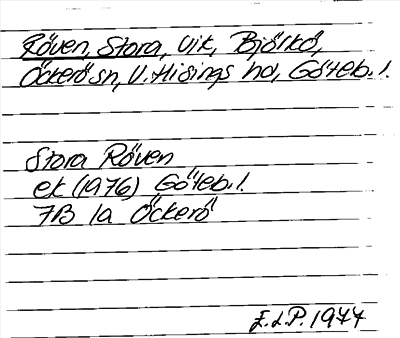 Röven, Stora, vik, Björkö,
Öckerö sn, V. Hisings hd, Göteb. l.
Stora Röven
ek (1976) Göteb. l.
7B 1a Öckerö
E.d.P. 1977